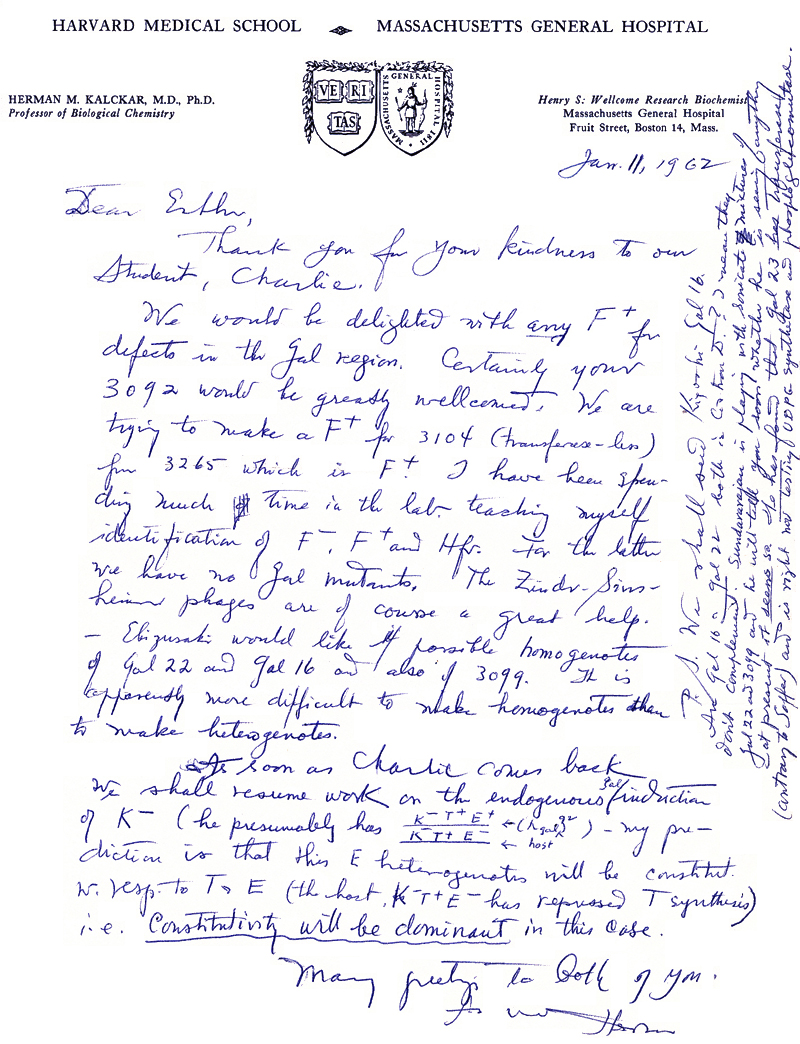 HARVARD MEDICAL SCHOOL MASSACHUSETTS GENERAL HOSPITAL
VE RI
TAS
MASSACHUSETTS GENERAL HOSPITAL 1811
HERMAN M. KALCKAR, M.D., Ph.D.
Professor of Biological Chemistry
Henry S. Wellcome Research Biochemist
Massachusetts General Hospital
Fruit Street, Boston 14, Mass.
Jan. 11, 1962
Dear Esther,
Thank you for your kindness to our
Student, Charlie.
We would be delighted with any F+ for
defects in the Gal region. Certainly your
3092 would be greatly wellcomed. We are
trying to make a F+ for 3104 (transferase-less)
for 3265 which is F+. I have been spen-
ding much time in the lab. teaching myself
identification of F-, F+ and Hfr. For the latter
we have no Gal mutants. The Zindr-Sins-
heimer phages are of course a great help.
- Ebizusaki would like if possible homogenotes
of Gal 22 and Gal 16 and also of 3099. It is
apparently more difficult to make homogenotes than
to make heterogenotes.
As soon as Charlie comes back
we shall resume work on the endogenous gal induction
of K- (he presumably has K- T+ E+ ← (λ gal) 
K- T+ E- ← host) - my pre-
diction is that this E heterogenotes will be constitut.
w. resp. to T & E (the host, K-T+E- has repressed T synthesis)
i.e. Constitutivity will be dominant in this case.
Many greetings to both of you.
Herman
P. S. We shall send Kiyoshi Gal 16.
Are Gal 16 - Gal 22 both in Cistron D.? I mean they
don't complement. Sundararajan is playing with sonicate mixtures of
Gal 22 and 3099 and he will tell you soon whether he is seeing anything
at present it seems so. He has found that Gal 23 has transferase
(contrary to Soffer) and is right now testing UDPG synthetase and phosphoglucomutase.